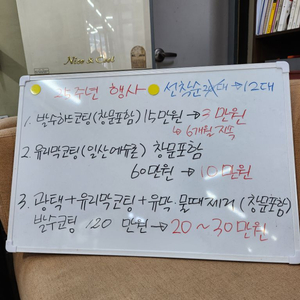 5주년 행사 선착순 → 12대
1. 발수하드코팅(창문포함) 15만원 → 3만원
↳ 6개월 지속
2. 유리막코팅(일산에듀론) 창문포함
60만원 → 10만원
3. 광택+유리막코팅+유막·물때제거(창문포함)
발수코팅 120만원 → 20~30만원